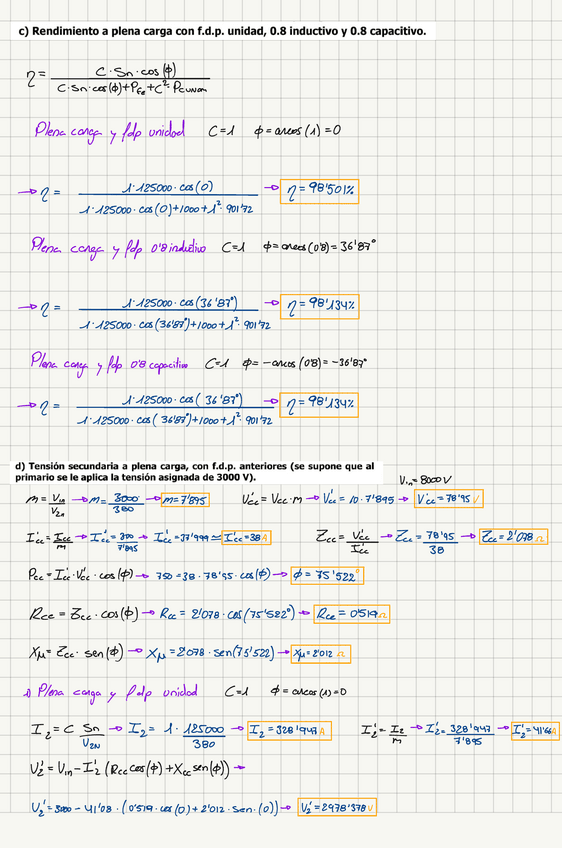 c) Rendimiento a plena carga con f.d.p. unidad, 0.8 inductivo y 0.8 capacitivo.
η = C·Sn·cos(ϕ) / C·Sn·cos(ϕ)+P_Fe+C²·P_CUNOM
Plena carga y fdp unidad C=1 ϕ=arcos(1)=0
→ η = 1·125000·cos(0) / 1·125000·cos(0)+1000+1²·901'72 → η=98'501%
Plena carga y fdp 0'8 inductivo C=1 ϕ=arcos(0'8)=36'87°
→ η = 1·125000·cos(36'87°) / 1·125000·cos(36'87°)+1000+1²·901'72 → η=98'134%
Plena carga y fdp 0'8 capacitivo C=1 ϕ=-arcos(0'8)=-36'87°
→ η = 1·125000·cos(36'87°) / 1·125000·cos(36'87°)+1000+1²·901'72 → η=98'134%
d) Tensión secundaria a plena carga, con f.d.p. anteriores (se supone que al
primario se le aplica la tensión asignada de 3000 V).
V₁ₙ=8000V
m = V₁ₙ/V₂ₙ → m = 3000/380 → m=7'895 V'cc = Vcc·m → V'cc = 10·7'895 → V'cc=78'95 V
I'cc = Icc/m → I'cc = 300/7'895 → I'cc=37'999 ≃ I'cc=38A Zcc = V'cc/I'cc → Zcc = 78'95/38 → Zcc=2'078 Ω
Pcc = I'cc·V'cc·cos(ϕ) → 750=38·78'95·cos(ϕ) → ϕ=75'522°
Rcc = Zcc·cos(ϕ) → Rcc = 2'078·cos(75'522°) → Rcc=0'519Ω
Xμ = Zcc·sen(ϕ) → Xμ = 2'078·sen(75'522) → Xμ=2'012 Ω
Plena carga y fdp unidad C=1 ϕ=arcos(1)=0
I₂ = C Sn/V₂N → I₂ = 1·125000/380 → I₂=328'947A I'₂ = I₂/m → I'₂ = 328'947/7'895 →
V'₂ = V₁ₙ-I'₂(Rcc cos(ϕ)+Xcc sen(ϕ)) →
V'₂ = 3000-41'08·(0'519·cos(0)+2'012·sen(0)) → V'₂=2978'378V